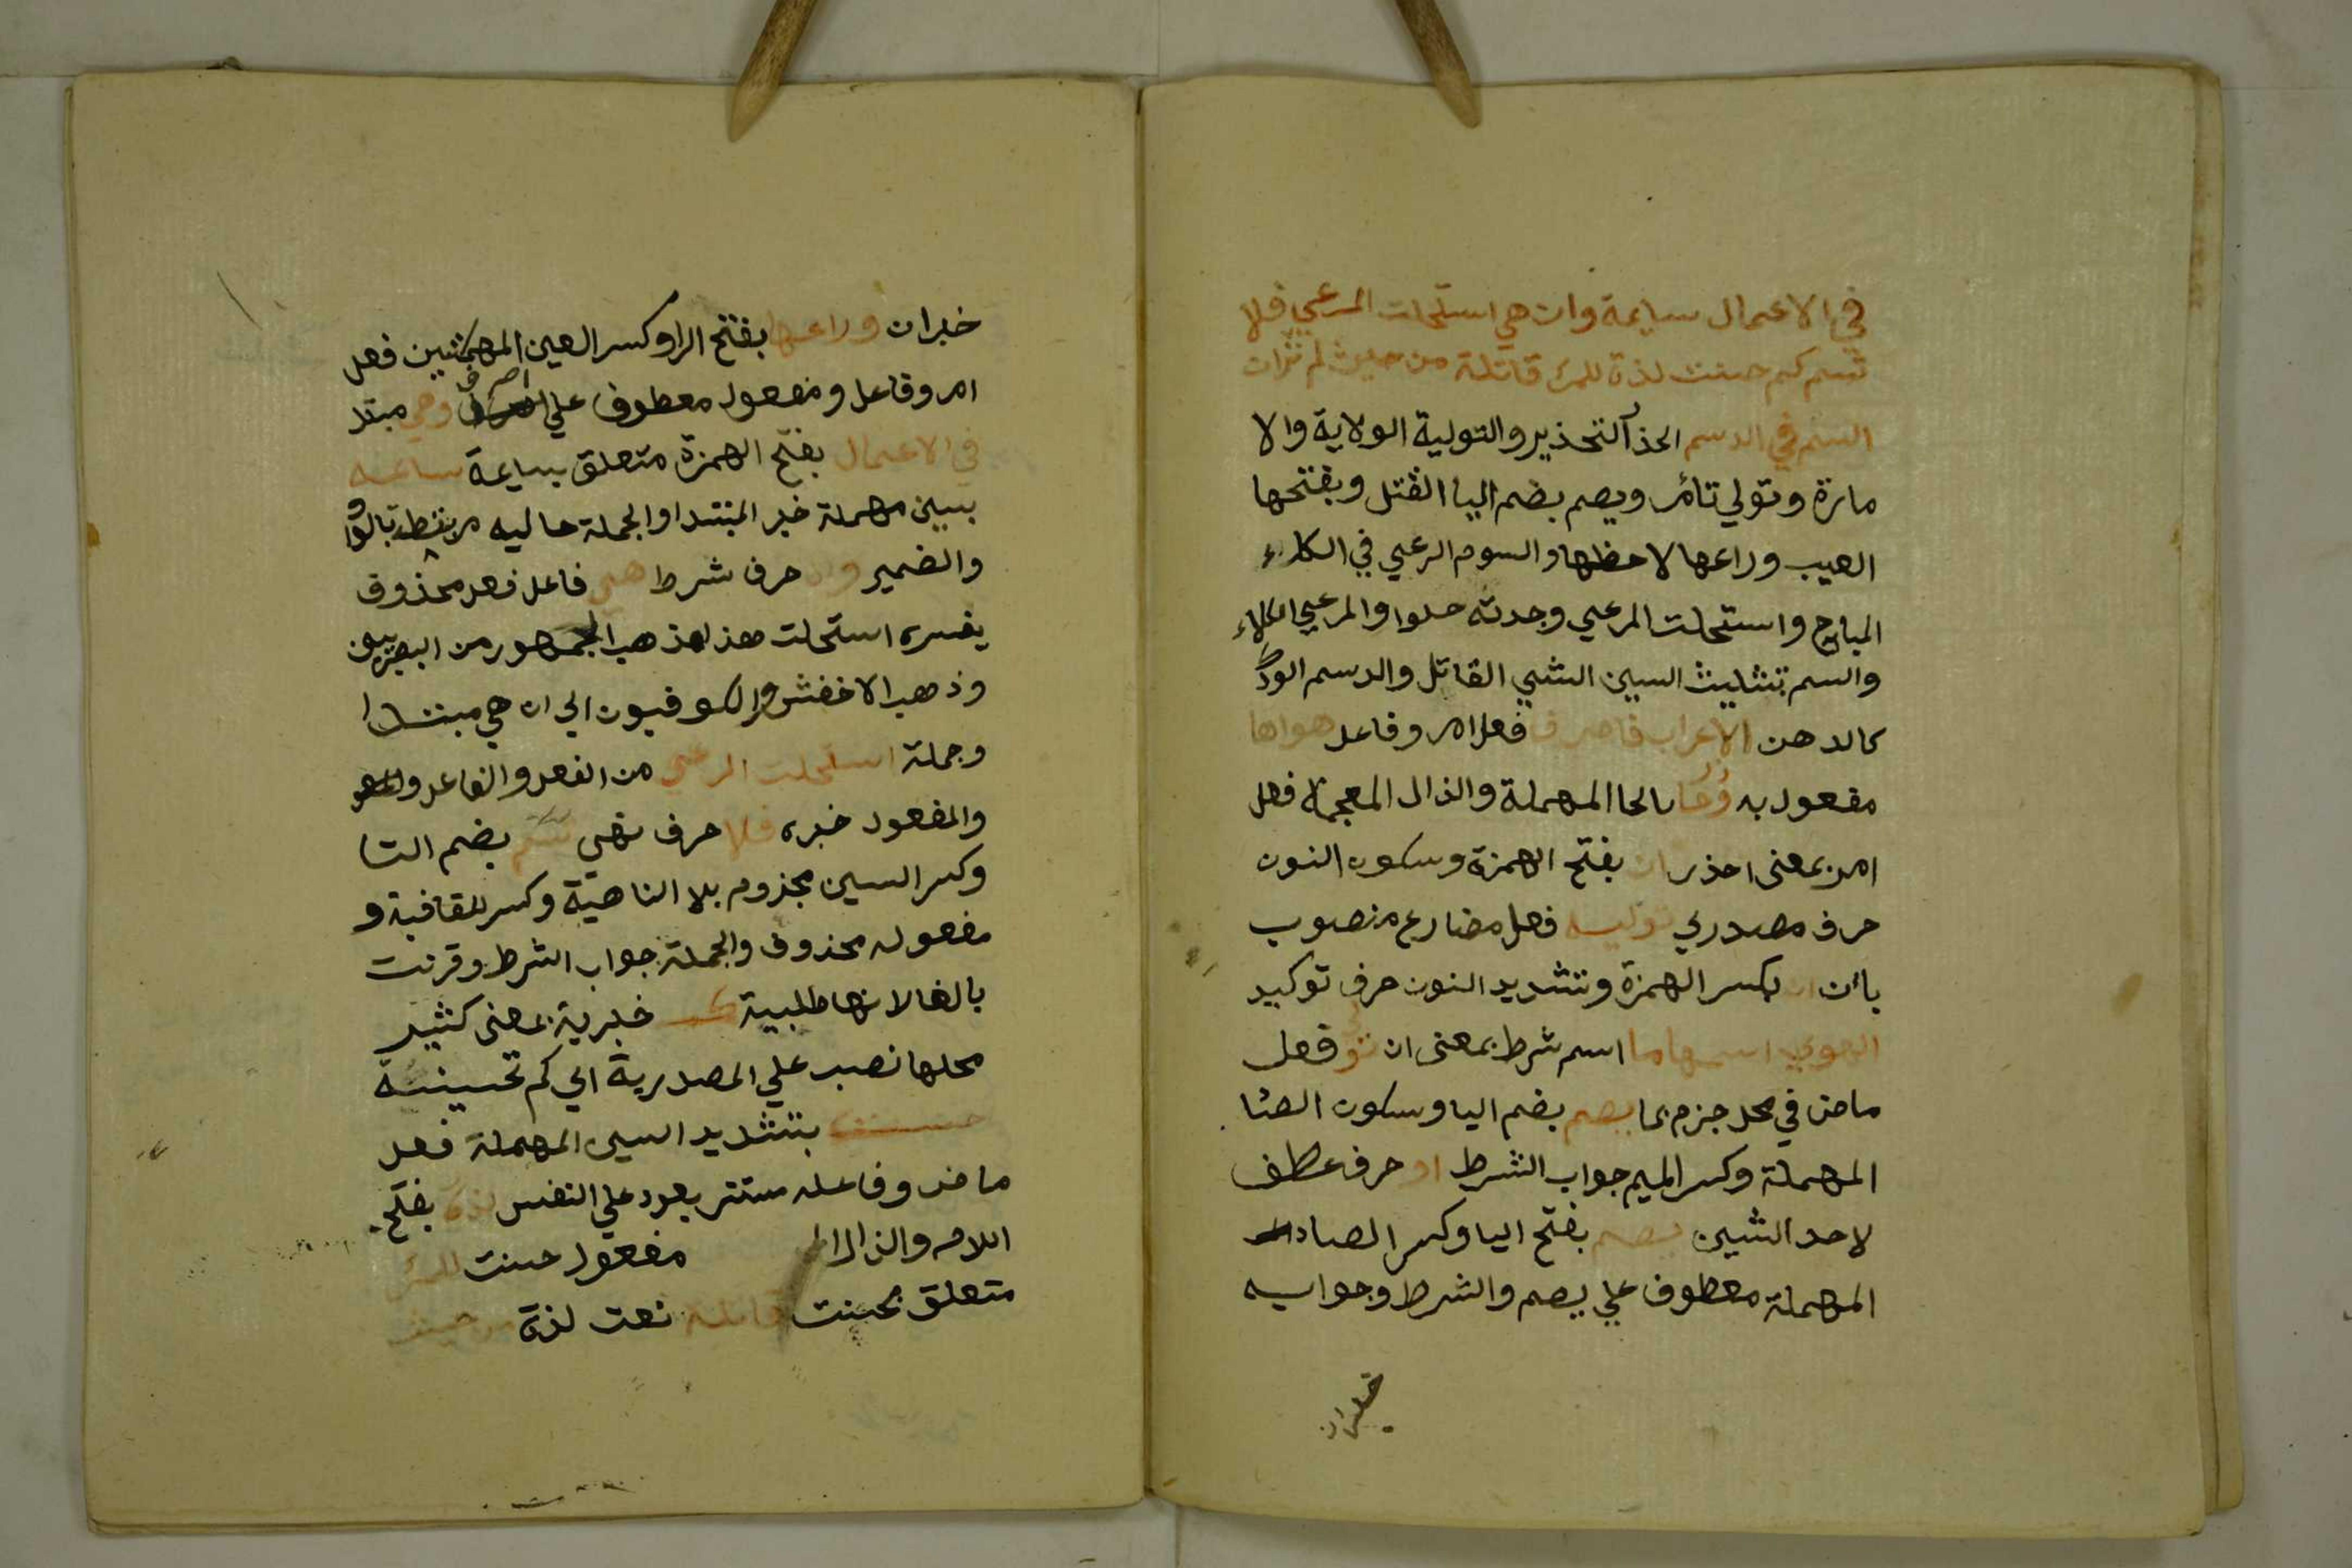 في الاعمال سايمة وان هي استحلت المرعي فلا
تسم كم حسنت لذة للمرء قاتلة من حيث لم تران
السم في الدسم الحذر التحذير والتولية الولاية والا
مارة وتولي تائمر ويصم بضم اليا القتل وبفتحها
العيب وراعها لاحظها والسوم الرعي في الكلاء
المباح واستحلت المرعي وجدته حلوا والمرعي الكلاء
والسم بتثليث السين الشي القاتل والدسم الودك
كالدهن الاعراب فاصرف فعل امر وفاعل هواها
مفعول به وحاذر بالحا المهملة والذال المعجمة فعل
امر بمعنى احذر ان بفتح الهمزة وسكون النون
حرف مصدري توليه فعل مضارع منصوب
بأن ان بكسر الهمزة وتشديد النون حرف توكيد
الهوي اسمها ما اسم شرط بمعنى ان تولى فعل
ماض في محل جزم بما يصم بضم اليا وسكون الصا
المهملة وكسر الميم جواب الشرط او حرف عطف
لاحد الشيين يصم بفتح اليا وكسر الصاد
المهملة معطوف علي يصم والشرط وجوابه
خبران
خبران وراعها بفتح الرا وكسر العين المهملتين فعل
امر وفاعل ومفعول معطوف علي اصرف وهي مبتد
في الاعمال بفتح الهمزة متعلق بسايمة سايمه
بسين مهملة خبر المبتدا والجملة حاليه مرتبطة بالوا
والضمير وان حرف شرط هي فاعل فعل محذوف
يفسره استحلت هذا مذهب الجمهور من البصريين
وذهب الاخفش والكوفيون الي ان هي مبتدا
وجملة استحلت المرعي من الفعل والفاعل
والمفعول خبره فلا حرف نهي تسم بضم التا
وكسر السين مجزوم بلا الناهية وكسر للقافية و
مفعوله محذوف والجملة جواب الشرط وقرنت
بالفا لانها طلبية كم خبرية بمعنى كثير
محلها نصب علي المصدرية اي كم تحسينة
حسنت بتشديد السين المهملة فعل
ماض وفاعله مستتر يعود علي النفس لذة بفتح
اللام والذال مفعول حسنت للمرء
متعلق بحسنت قاتلة نعت لذة من حيث